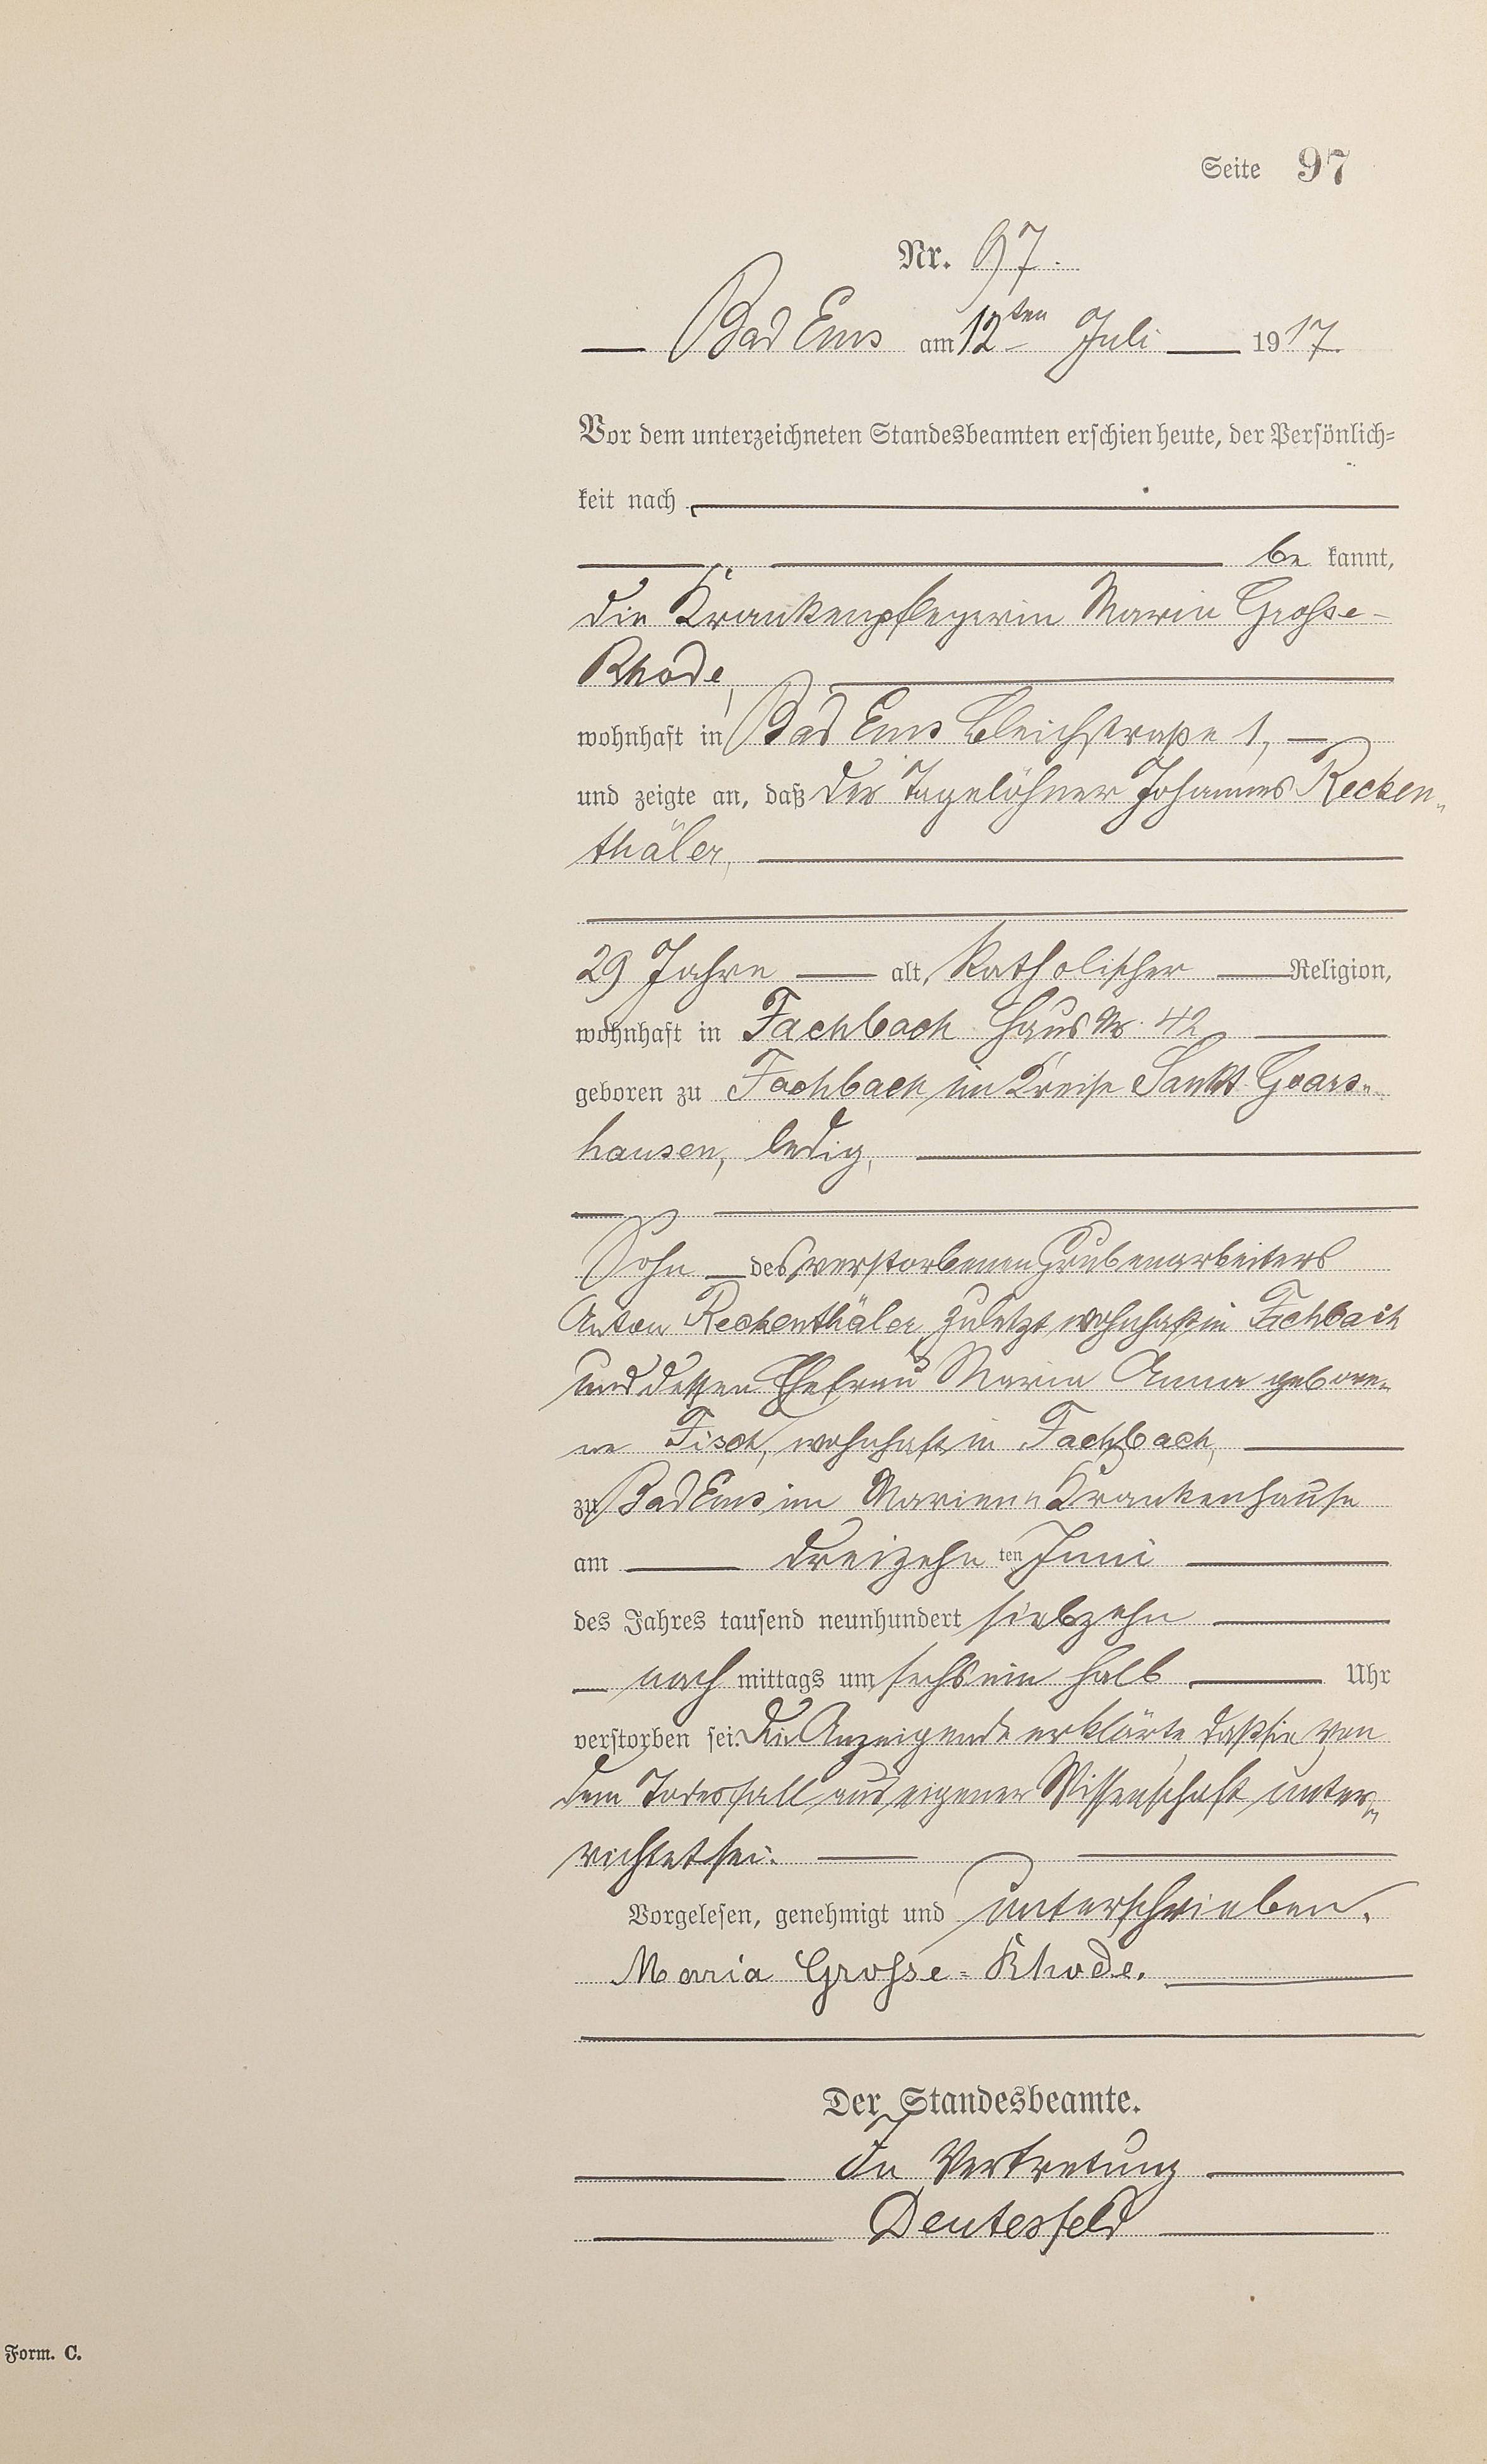 Seite 97
Nr. 97.
Bad Ems am 12ten Juli 1917.
Vor dem unterzeichneten Standesbeamten erschien heute, der Persönlich-
keit nach
be kannt,
die Krankenpflegerin Maria Grosse-
Rhode,
wohnhaft in Bad Ems Bleichstraße 1,
und zeigte an, daß der Tagelöhner Johannes Recken-
thäler,
29 Jahre alt, Katholischer Religion,
wohnhaft in Fachbach Haus Nr. 42
geboren zu Fachbach im Kreise Sankt Goars-
hausen, ledig,
Sohn des verstorbenen Grubenarbeiters
Anton Reckenthäler, zuletzt wohnhaft in Fachbach
und dessen Ehefrau Maria Anna gebore-
ne Fisch, wohnhaft in Fachbach,
zu Bad Ems im Marien-Krankenhause
am dreizehn ten Juni
des Jahres tausend neunhundert siebzehn
nach mittags um sechs ein halb Uhr
verstorben sei. Die Anzeigende erklärte, daß sie von
dem Todesfall aus eigener Wissenschaft unter-
richtet sei.
Vorgelesen, genehmigt und unterschrieben.
Maria Grosse-Rhode.
Der Standesbeamte.
In Vertretung
Deutesfeld
Form. C.